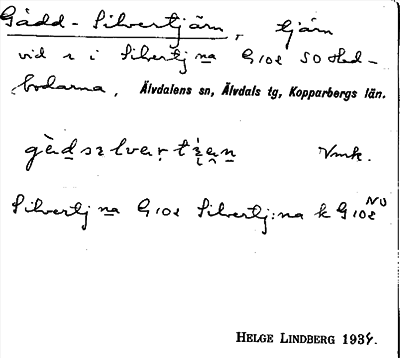 Gädd-Silvertjärn, tjärn
vid r i Silvertj na G 102 SO Hed-
bodarna, Älvdalens sn, Älvdals tg, Kopparbergs län.
Vmk.
Silvertj na G 102 Silvertj:na k G 102 NO
HELGE LINDBERG 1934.